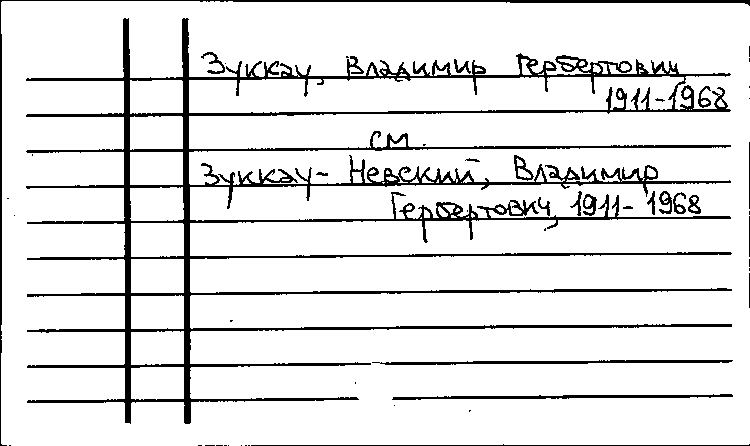 Зуккау, Владимир Гербертович,
1911-1968
см.
Зуккау- Невский, Владимир
Гербертович, 1911- 1968